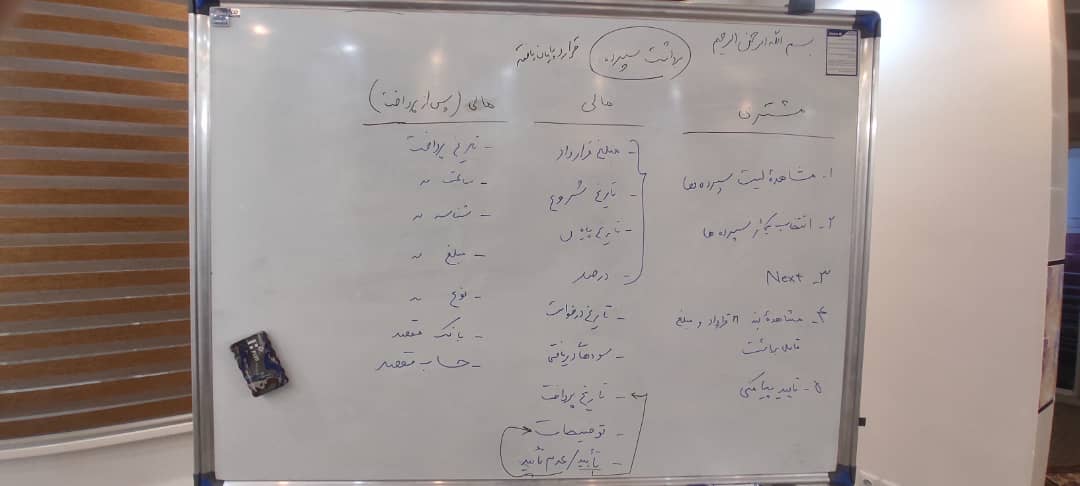 بسم الله الرحمن الرحیم
برداشت سپرده
قرارداد پایان یافته
مشتری
۱. مشاهدهٔ لیست سپرده‌ها
۲. انتخاب یکی از سپرده ها
۳. Next
۴. مشاهدهٔ بند ۸ قرارداد و مبلغ
قابل برداشت
۵. تایید پیامکی
مالی
- مبلغ قرارداد
- تاریخ شروع
- تاریخ پایان
- درصد
- تاریخ درخواست
- سودهای دریافتی
- تاریخ پرداخت
- توضیحات
- تأیید/عدم تأیید
مالی (پس از پرداخت)
- تاریخ پرداخت
- ساعت 〃
- شناسه 〃
- مبلغ 〃
- نوع 〃
- بانک مقصد
- حساب مقصد